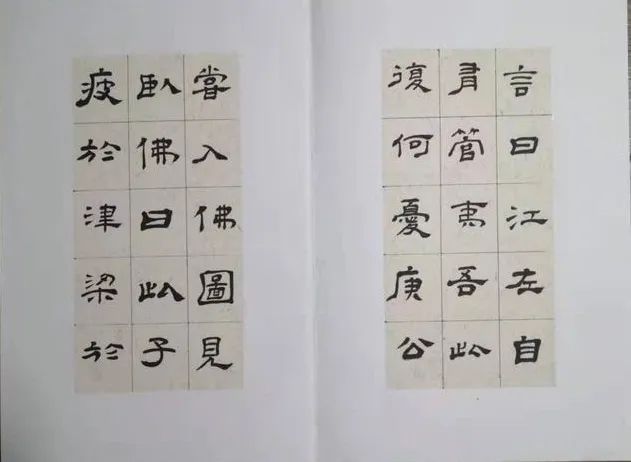 言曰江左自
有管夷吾此
復何憂庾公
嘗入佛圖見
臥佛曰此子
疲於津梁於